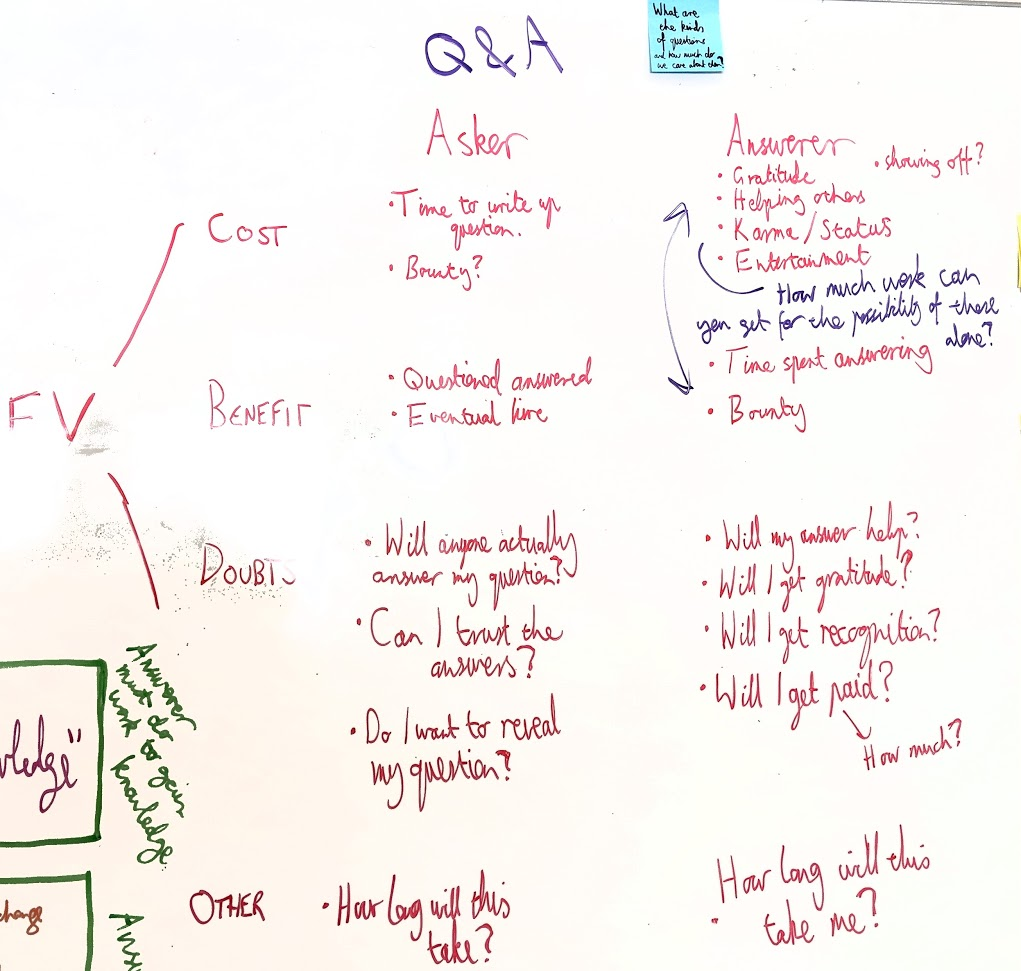 Q & A
What are
the kinds
of questions
and how much do
we care about them?
Asker
Answerer
• showing off?
• Gratitude
• Helping others
• Karma / Status
• Entertainment
How much work can
you get for the possibility of these
alone?
• Time spent answering
• Bounty
COST
• Time to write up
question.
• Bounty?
EV
BENEFIT
• Questioned answered
• Eventual hire
DOUBTS
• Will anyone actually
answer my question?
• Can I trust the
answers?
• Do I want to reveal
my question?
• Will my answer help?
• Will I get gratitude?
• Will I get recognition?
• Will I get paid?
How much?
Answerer
must do
work to gain
knowledge
wledge"
OTHER
• How long will this
take?
How long will this
• take me?
change
Ans